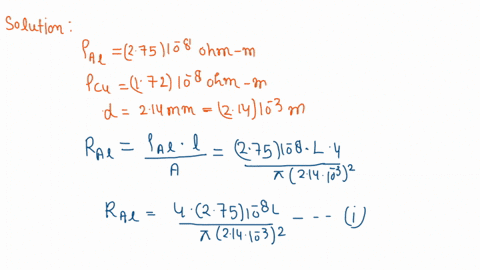 Solution:
ρAl = (2.75)10⁻⁸ ohm-m
ρcu = (1.72)10⁻⁸ ohm-m
d = 2.14mm = (2.14)10⁻³ m
RAl = ρAl · l / A = (2.75)10⁻⁸ · L · 4 / π(2.14·10⁻³)²
RAl = 4·(2.75)10⁻⁸L / π(2.14·10⁻³)² ---- (i)